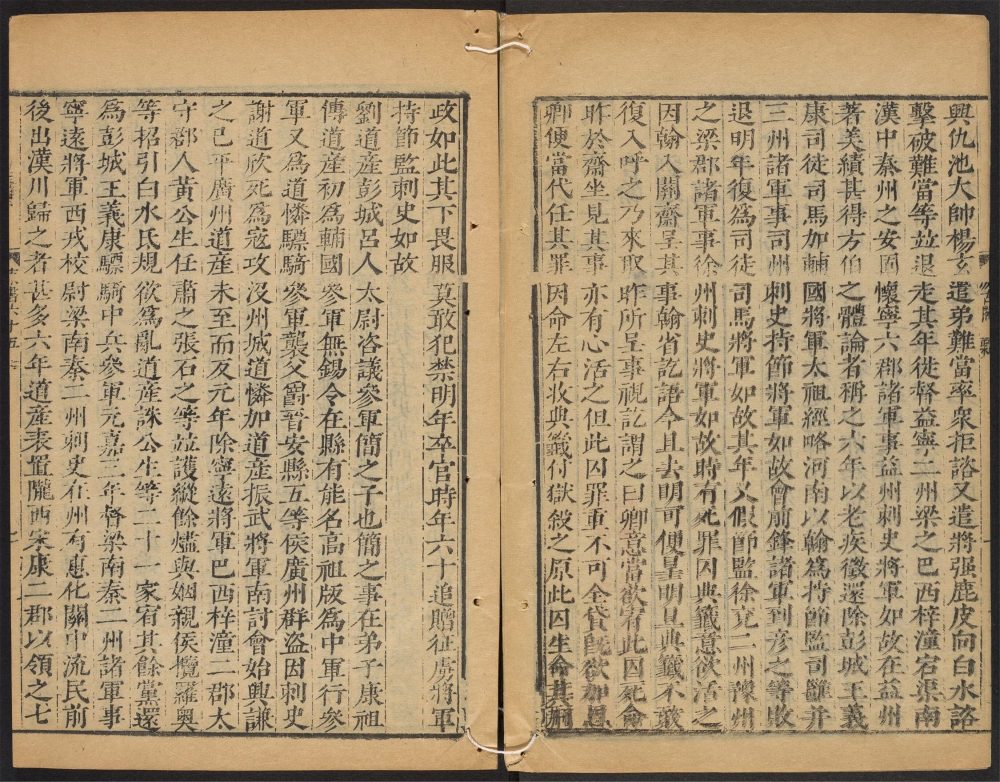 興仇池大帥楊玄遣弟難當率衆拒諮又遣將强鹿皮向白水諮
擊破難當等並退走其年徙督益寧二州梁之巴西梓潼宕渠南
漢中秦州之安固懷寧六郡諸軍事益州刺史將軍如故在益州
著美績甚得方伯之體論者稱之六年以老疾徵還除彭城王義
康司徒司馬加輔國將軍太祖經略河南以翰爲持節監司雝并
三州諸軍事司州刺史持節將軍如故會前鋒諸軍到彥之等敗
退明年復爲司徒司馬將軍如故其年又假節監徐兗二州豫州
之梁郡諸軍事徐州刺史將軍如故時有死罪囚典籤意欲活之
因翰入關齋呈其事翰省訖語今且去明可便呈明旦典籤不敢
復入呼之乃來取昨所呈事視訖謂之曰卿意當欲宥此囚死命
昨於齋坐見其事亦有心活之但此囚罪重不可全貸旣欲加恩
卿便當代任其罪因命左右收典籤付獄殺之原此囚生命其刑
政如此其下畏服莫敢犯禁明年卒官時年六十追贈征虜將軍
持節監刺史如故
劉道產彭城呂人太尉咨議參軍簡之子也簡之事在弟子康祖
傳道產初爲輔國參軍無錫令在縣有能名高祖版爲中軍行參
軍又爲道憐驃騎參軍襲父爵晉安縣五等侯廣州群盜因刺史
謝道欣死爲寇攻沒州城道憐加道產振武將軍南討會始興謙
之已平廣州道產未至而反元年除寧遠將軍巴西梓潼二郡太
守郡人黃公生任肅之張石之等並護縱餘燼與姻親侯攬羅奧
等招引白水氐規欲爲亂道產誅公生等二十一家宥其餘黨還
爲彭城王義康驃騎中兵參軍元嘉三年督梁南秦二州諸軍事
寧遠將軍西戎校尉梁南秦二州刺史在州有惠化關中流民前
後出漢川歸之者甚多六年道產表置隴西宋康二郡以領之七